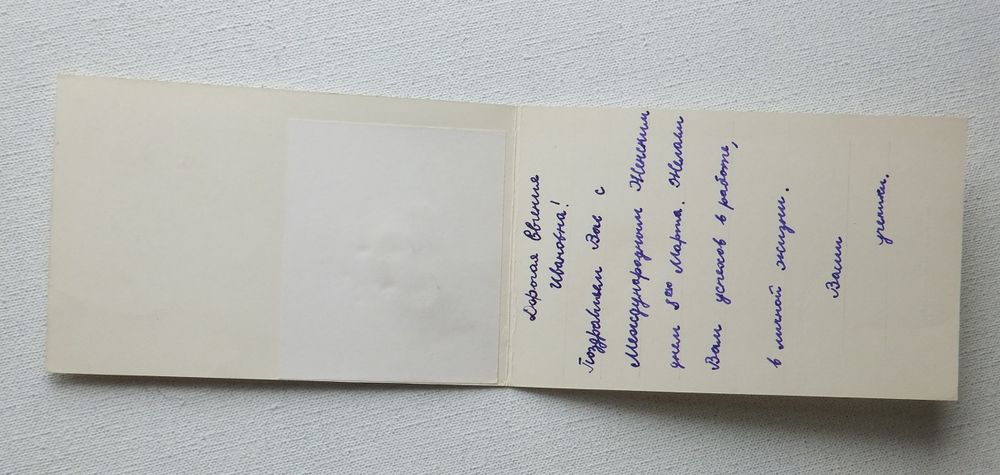 Дорогая Евгения
Ивановна!
Поздравляем Вас с
Международным Женским
днем 8ого Марта. Желаем
Вам успехов в работе,
в личной жизни.
Ваши
ученики.